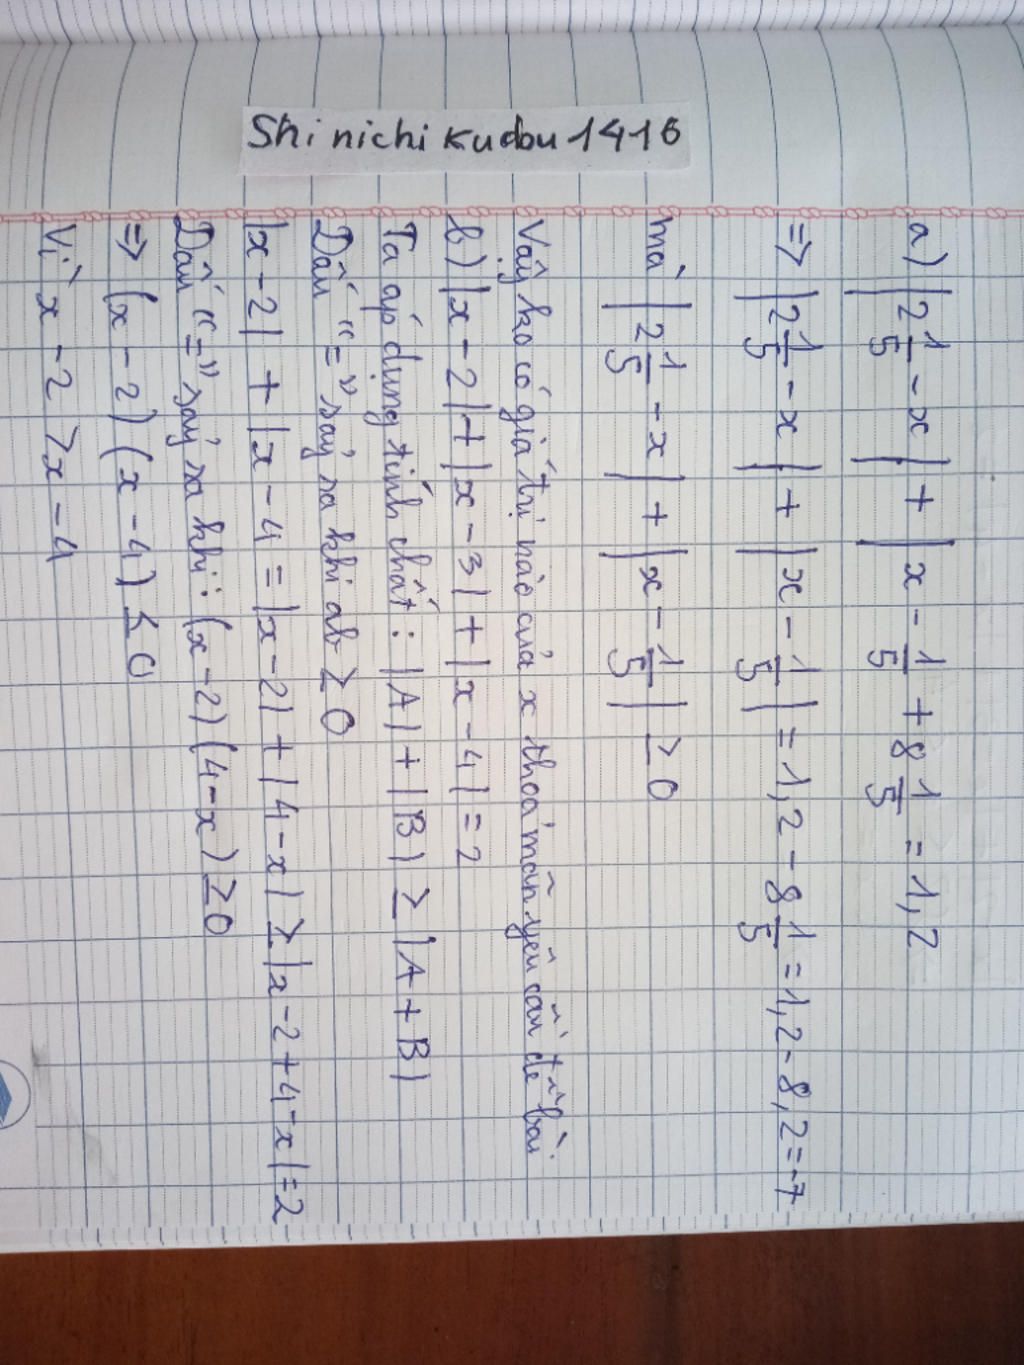 Shinichikudou1416
a) |2 1/5 - x| + |x - 1/5 + 8 1/5 = 1,2
=> |2 1/5 - x| + |x - 1/5| = 1,2 - 8 1/5 = 1,2 - 8,2 = -7
mà |2 1/5 - x| + |x - 1/5| ≥ 0
Vậy ko có giá trị nào của x thoả mãn yêu cầu đề bài
b) |x - 2| + |x - 3| + |x - 4| = 2
Ta áp dụng tính chất: |A| + |B| ≥ |A + B|
Dấu "=" sảy ra khi ab ≥ 0
|x - 2| + |x - 4 = |x - 2| + |4 - x| ≥ |x - 2 + 4 - x| = 2
Dấu "=" sảy ra khi: (x - 2) (4 - x) ≥ 0
=> (x - 2) (x - 4) ≤ 0
Vì x - 2 > x - 4